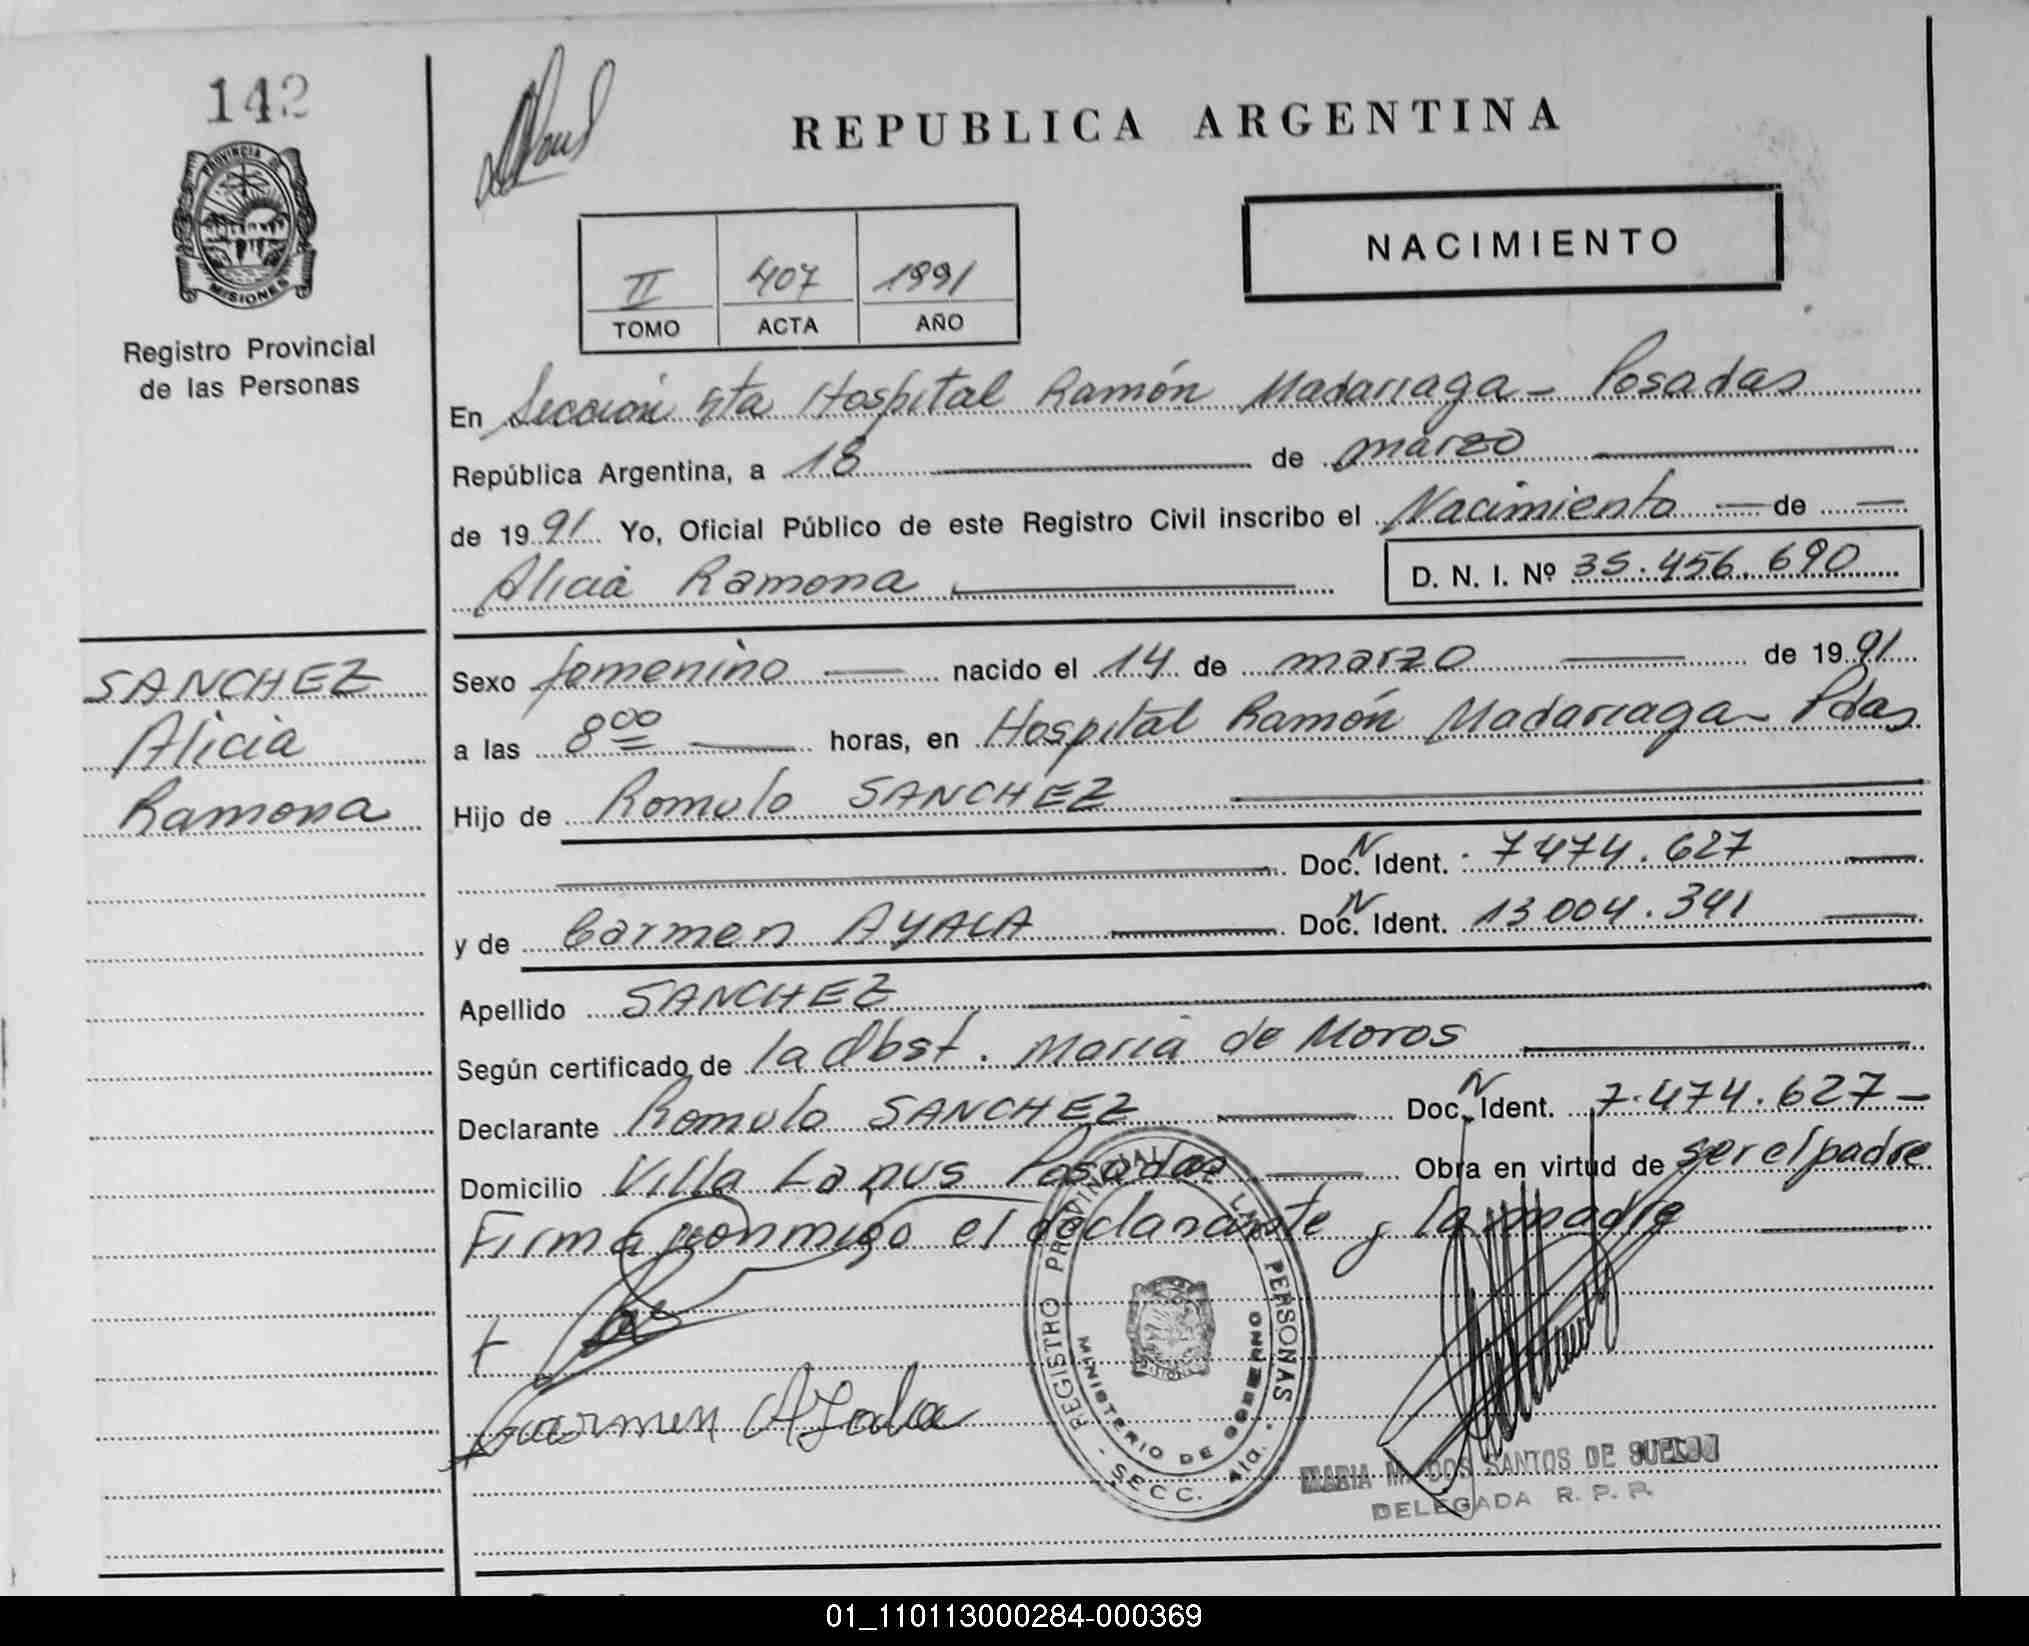 142
REPUBLICA ARGENTINA
PROVINCIA DE
MISIONES
Registro Provincial
de las Personas
NACIMIENTO
II 407 1991
TOMO ACTA AÑO
En Sección 5ta Hospital Ramón Madariaga - Posadas
República Argentina, a 18 de marzo
de 1991 Yo, Oficial Público de este Registro Civil inscribo el Nacimiento de
Alicia Ramona D. N. I. Nº 35.456.690
SANCHEZ
Alicia
Ramona
Sexo femenino nacido el 14 de marzo de 1991
a las 8 00 horas, en Hospital Ramón Madariaga - Pdas
Hijo de Romulo SANCHEZ
Doc. N Ident. 7474.627
y de Carmen AYALA Doc. N Ident. 13004.341
Apellido SANCHEZ
Según certificado de la Obst. Maria de Moros
Declarante Romulo SANCHEZ Doc. N Ident. 7.474.627-
Domicilio Villa Lanus Posadas Obra en virtud de ser el padre
Firma conmigo el declarante y la madre
Carmen Ayala
REGISTRO PROVINCIAL DE LAS PERSONAS
MINISTERIO DE GOBIERNO
SECC. 5ta.
MARIA M. DOS SANTOS DE
DELEGADA R. P. P.
01_110113000284-000369